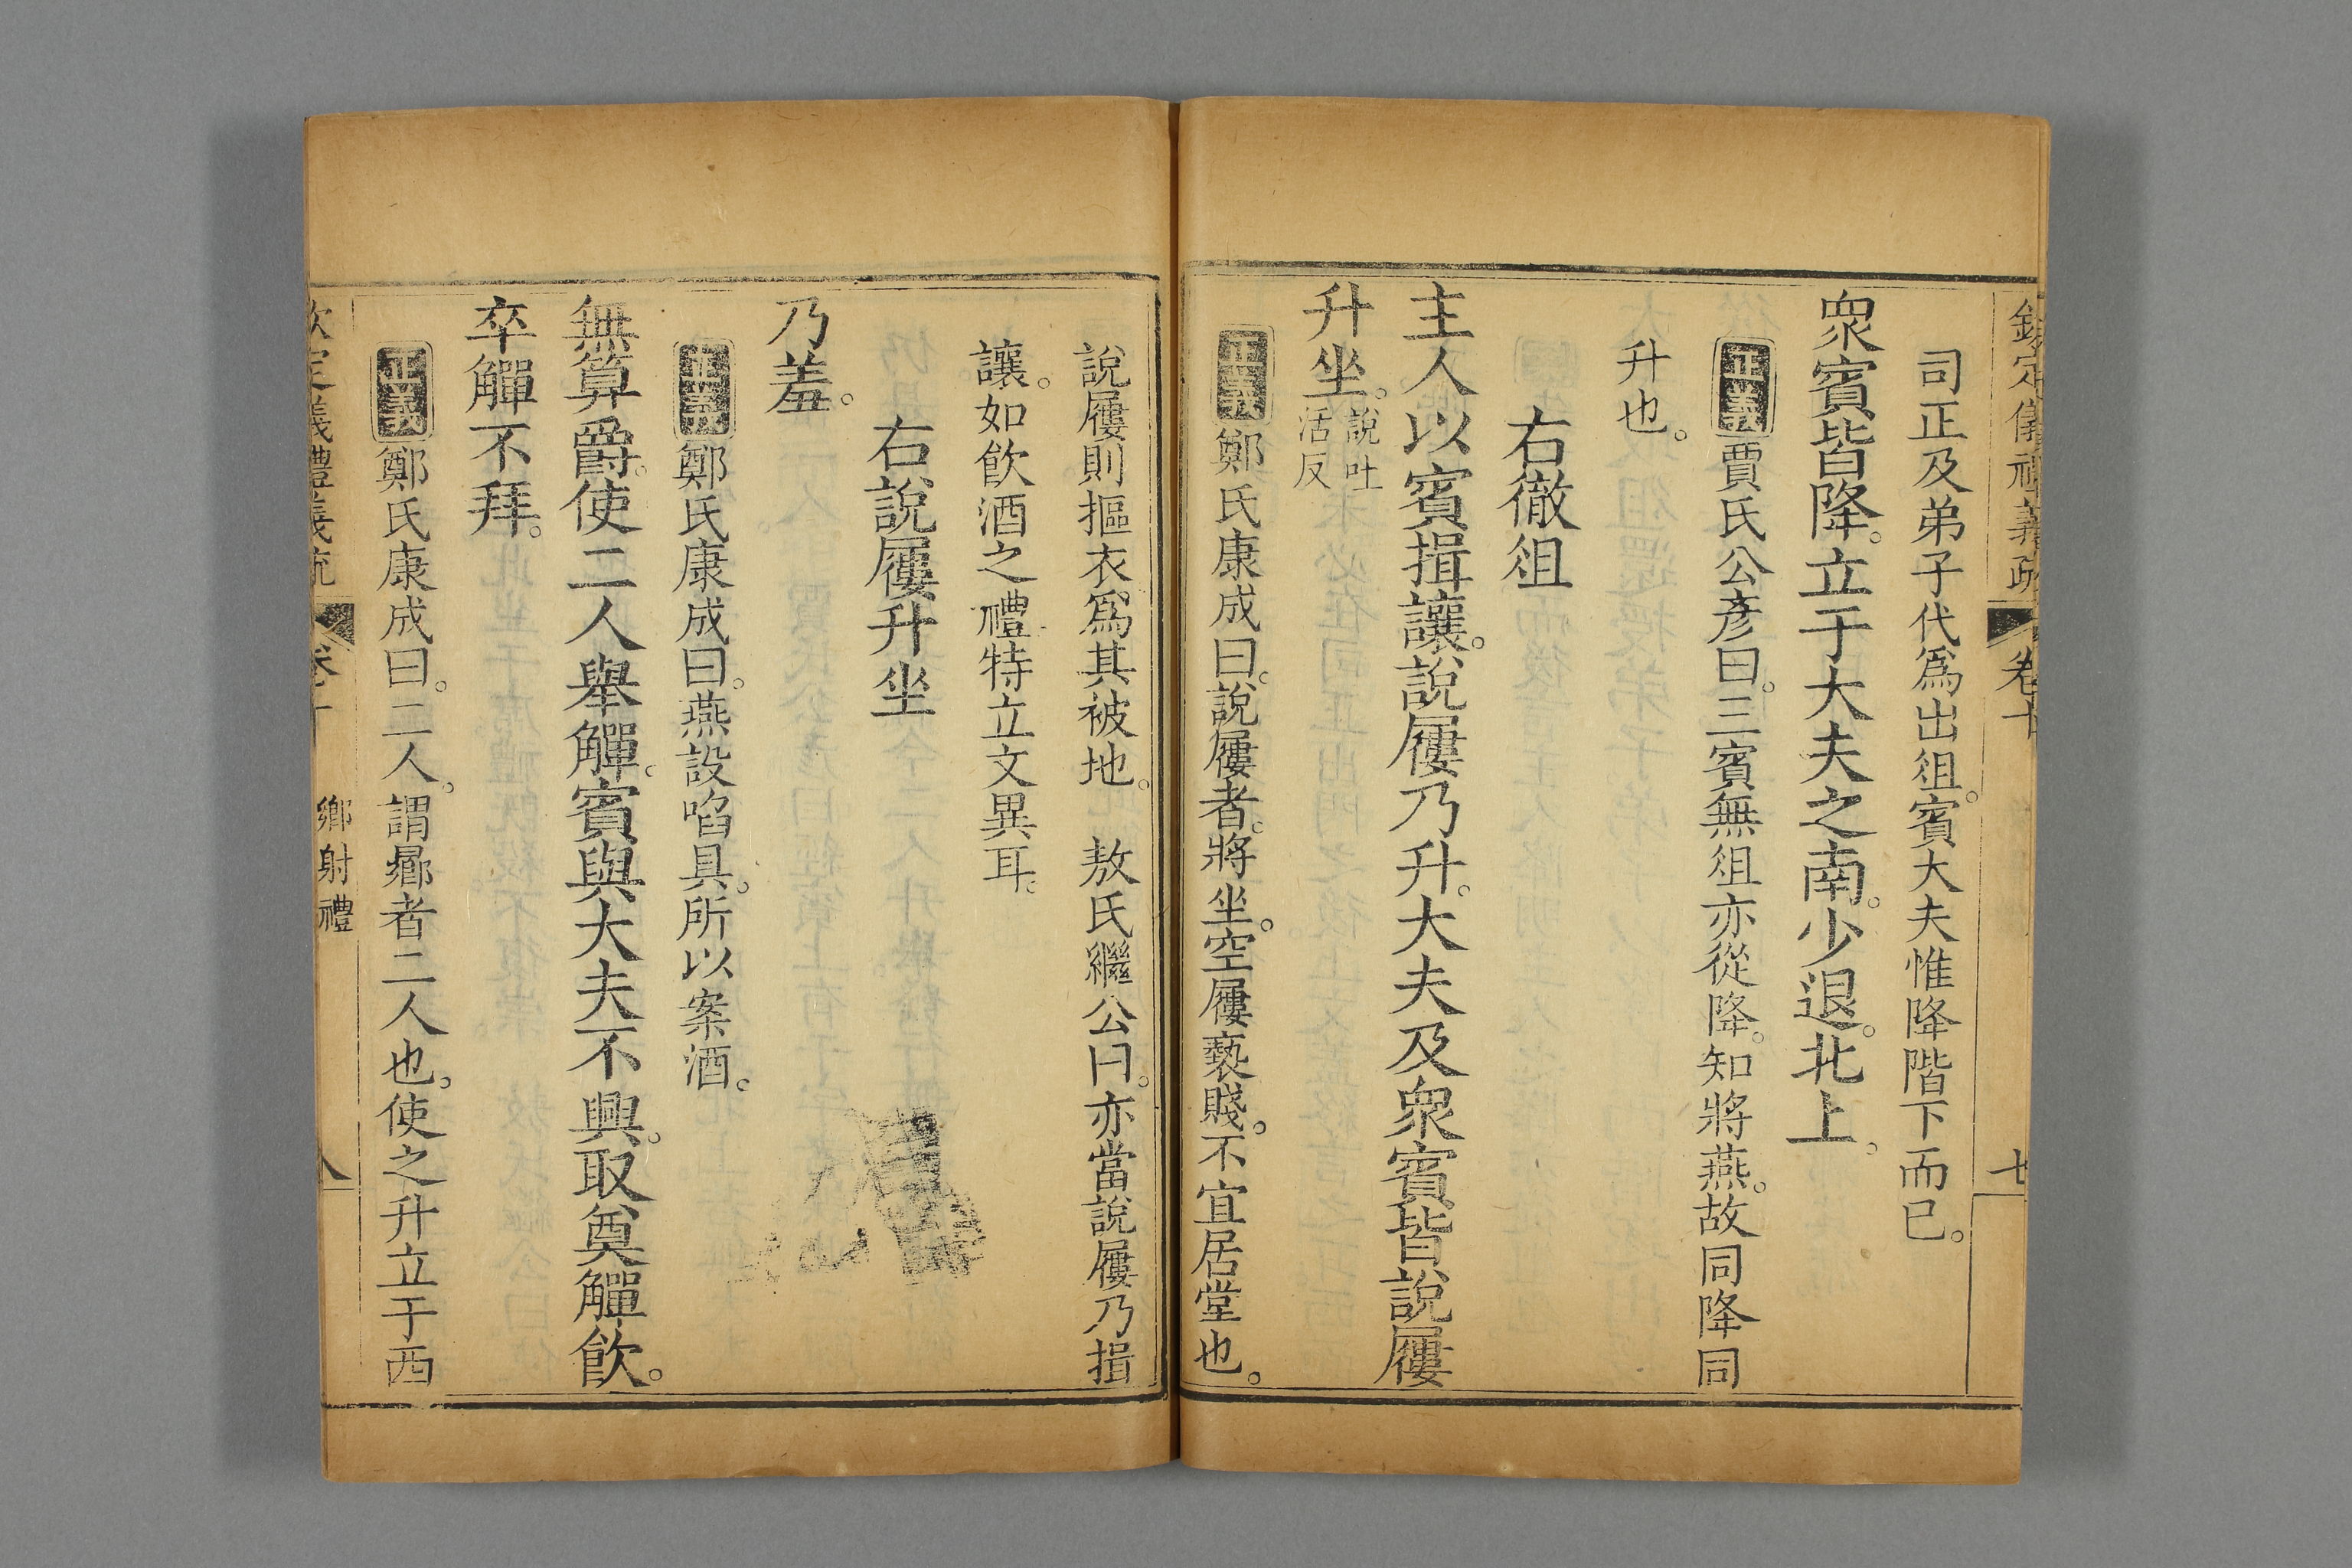 欽定儀禮義疏 卷十 七
司正及弟子代爲出俎。賓大夫惟降階下而已。
衆賓皆降。立于大夫之南。少退。北上。
正義 賈氏公彥曰。三賓無俎亦從降。知將燕。故同降同
升也。
右徹俎
主人以賓揖讓。說屨乃升。大夫及衆賓皆說屨
升坐。說吐活反
正義 鄭氏康成曰。說屨者。將坐。空屨褻賤。不宜居堂也。
說屨則摳衣爲其被地。 敖氏繼公曰。亦當說屨乃揖
讓。如飮酒之禮特立文異耳。
右說屨升坐
乃羞。
正義 鄭氏康成曰。燕設啗具。所以案酒。
無算爵。使二人舉觶。賓與大夫不興。取奠觶飮。
卒觶不拜。
正義 鄭氏康成曰。二人。謂曏者二人也。使之升立于西
欽定儀禮義疏 卷十 鄉射禮 八